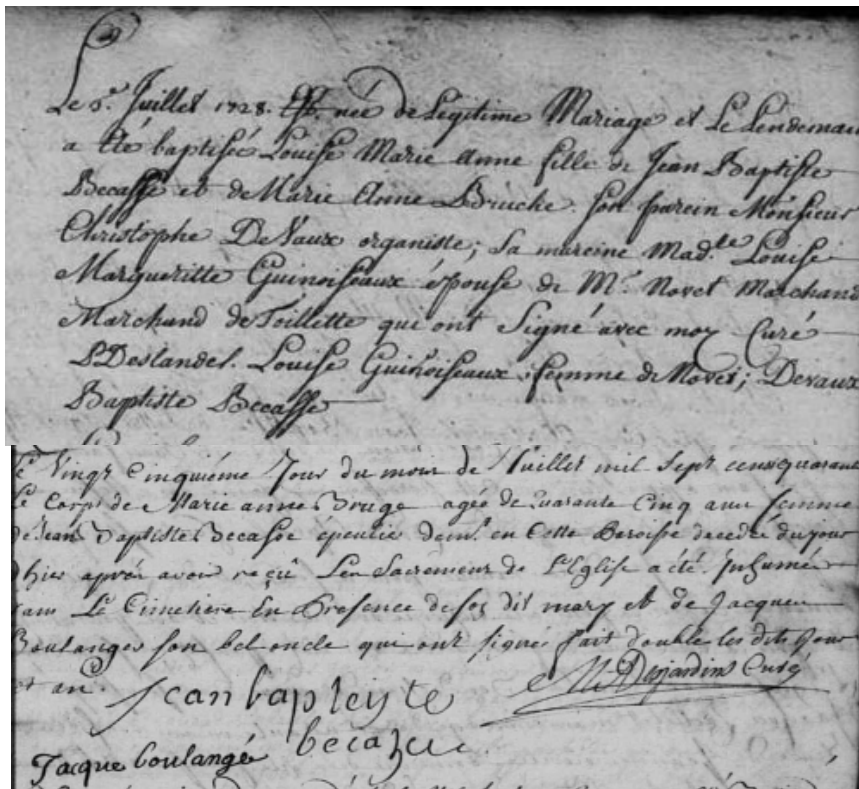 Le 5.e Juillet 1728. Est née de Légitime Mariage et Le Lendemain
a été baptisée Louise Marie Anne fille de Jean Baptiste
Becasse et de Marie Anne Bruche. son parein Monsieur
Christophe DeVaux organiste; sa mareine Mad.lle Louise
Margueritte Guinoiseaux épouse de Mr. Novet Marchand
Marchand de Toillette qui ont Signé avec moy Curé
P Deslandes. Louise Guinoiseaux femme de Novet; Devaux
Baptiste Becasse
Le Vingt Cinquiéme Jour du mois de Juillet mil Sept cens quarante
Le Corps de Marie anne Bruge agée de quarante Cinq ans femme
de Jean Baptiste Becasse dem.t en Cette Paroisse decedée du jour
dhier aprés avoir reçû Les Sacremens de L'Eglise a été Inhumée
dans Le Cimetiere En Presence de son dit mary et de Jacque
Boulanger son bel oncle qui ont signés fait double les dits Jour
et an.
M Desjardins Curé
Jean bapteiste
becasse
Jacque boulangé